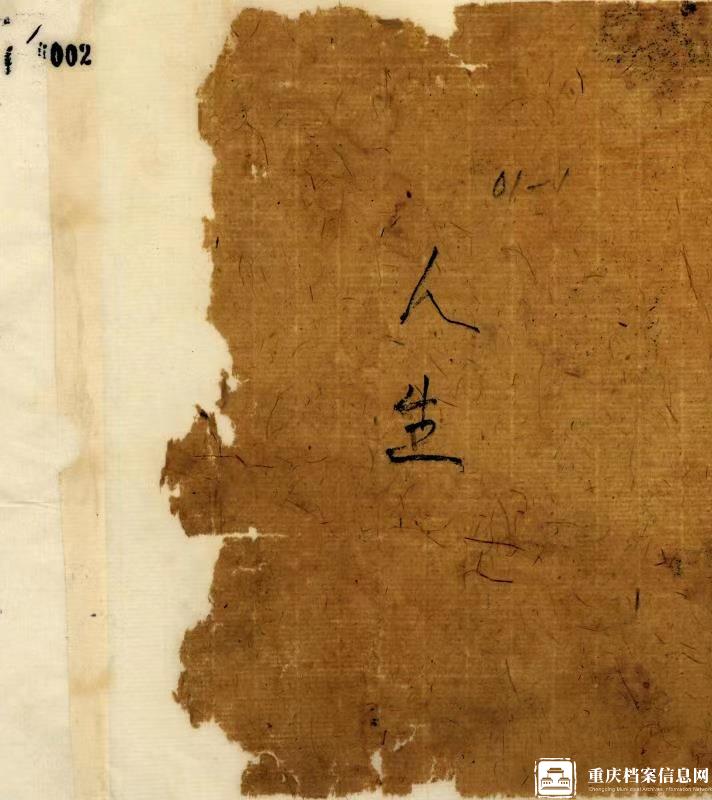 002
01-1
人
生
重庆档案信息网
Chongqing Municipal Archives Information Network